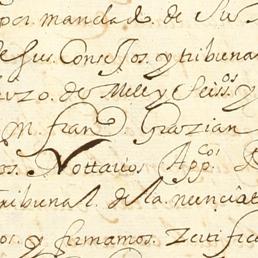 por mandado de su
de sus Consejos. y tribuna
de Mill y Seiss.os y
M. fran.co Grazian
os. Nottarios App.cos
tribunal. de la nunciat
os. y firmamos. Zertifica